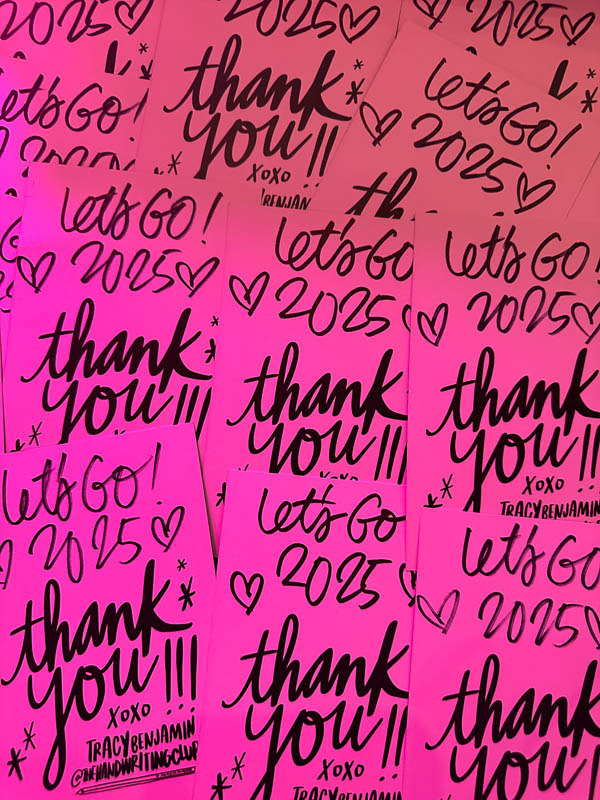 2025
2025
2025
thank
you!!
xoxo
Let's GO!
2025
th
Let's GO!
Let's GO!
2025
thank
you!!!
Let's GO
2025
thank
you!!
Let's GO!
2025
thank
you!!!
xoxo
TRACYBENJAMIN
Let's GO!
2025
thank
you!!!
xoxo
TRACYBENJAMIN
@THEHANDWRITINGCLUB
Let's GO
2025
thank
you!!
xoxo
Let's GO
2025
thank
you!